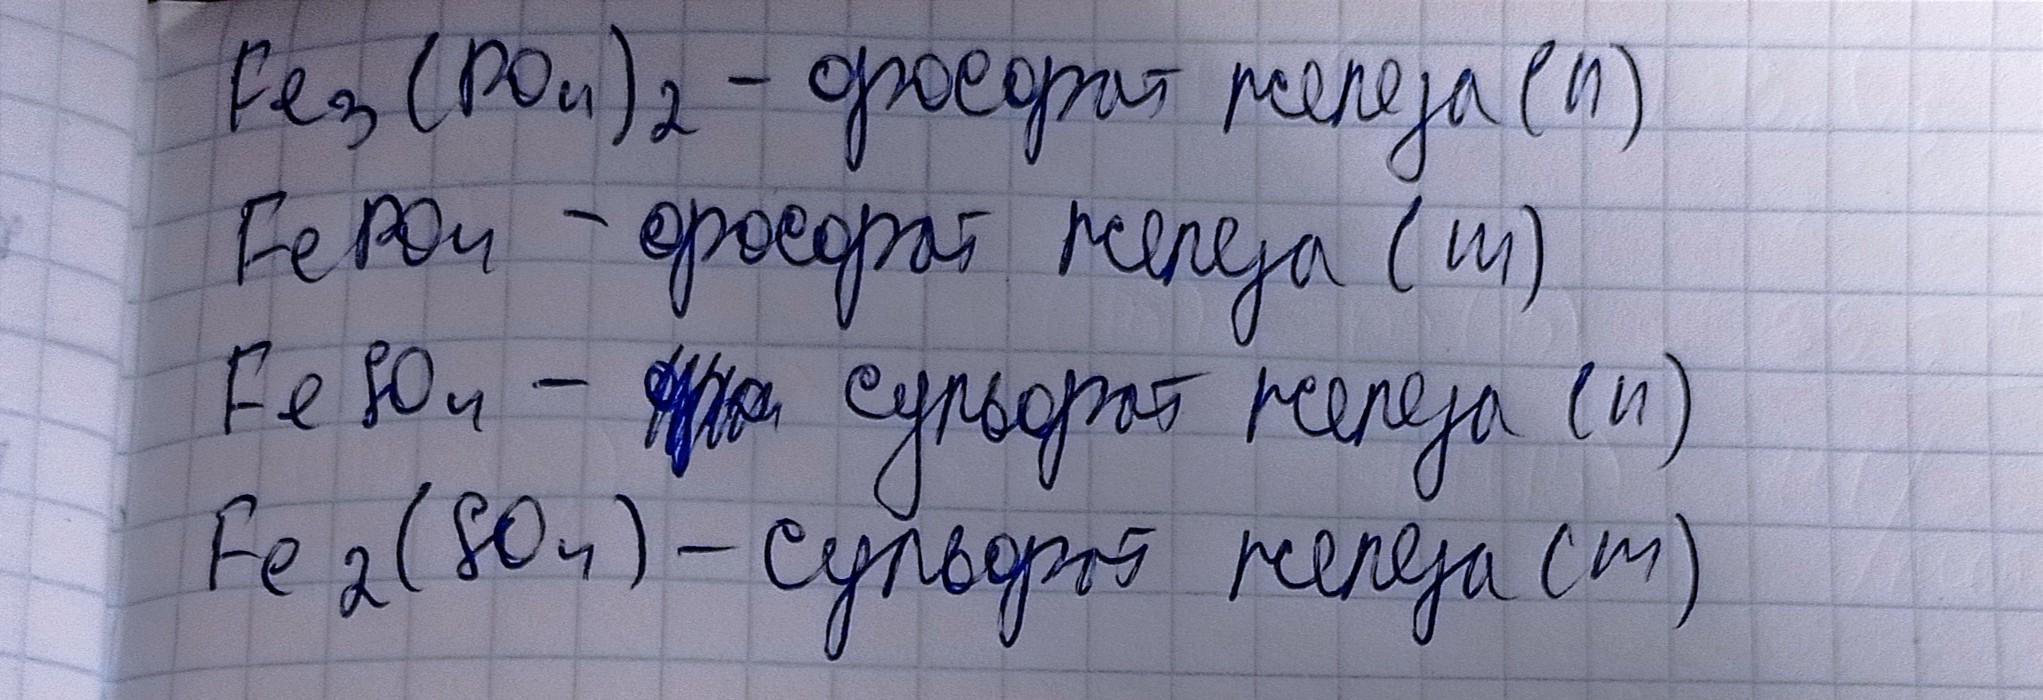 Fe₃(PO₄)₂ - фосфат железа (II)
FePO₄ - фосфат железа (III)
FeSO₄ - сульфат железа (II)
Fe₂(SO₄) - сульфат железа (III)